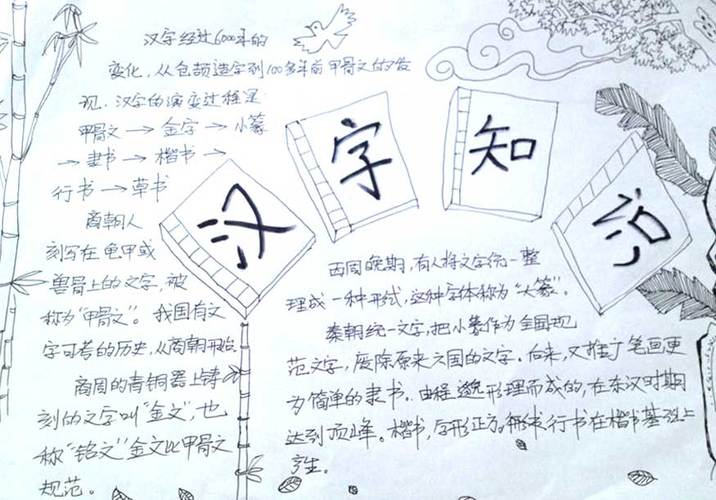 汉字经过6000年的
变化,从仓颉造字到100多年前甲骨文的发
现,汉字的演变过程是
甲骨文→金字→小篆
→隶书→楷书→
行书→草书
商朝人
刻写在龟甲或
兽骨上的文字,被
称为"甲骨文"。我国有文
字可考的历史,从商朝开始
商周的青铜器上铸
刻的文字叫"金文",也
称"铭文"金文比甲骨文
规范。
汉字知识
西周晚期,有人将文字统一整
理成一种形式,这种字体称为"大篆"。
秦朝统一文字,把小篆作为全国规
范文字,废除原来六国的文字。后来,又推广笔画更
为简单的隶书.由程邈形理而成的,在东汉时期
达到顶峰。楷书,字形正方。行书在楷书基础上
产生。